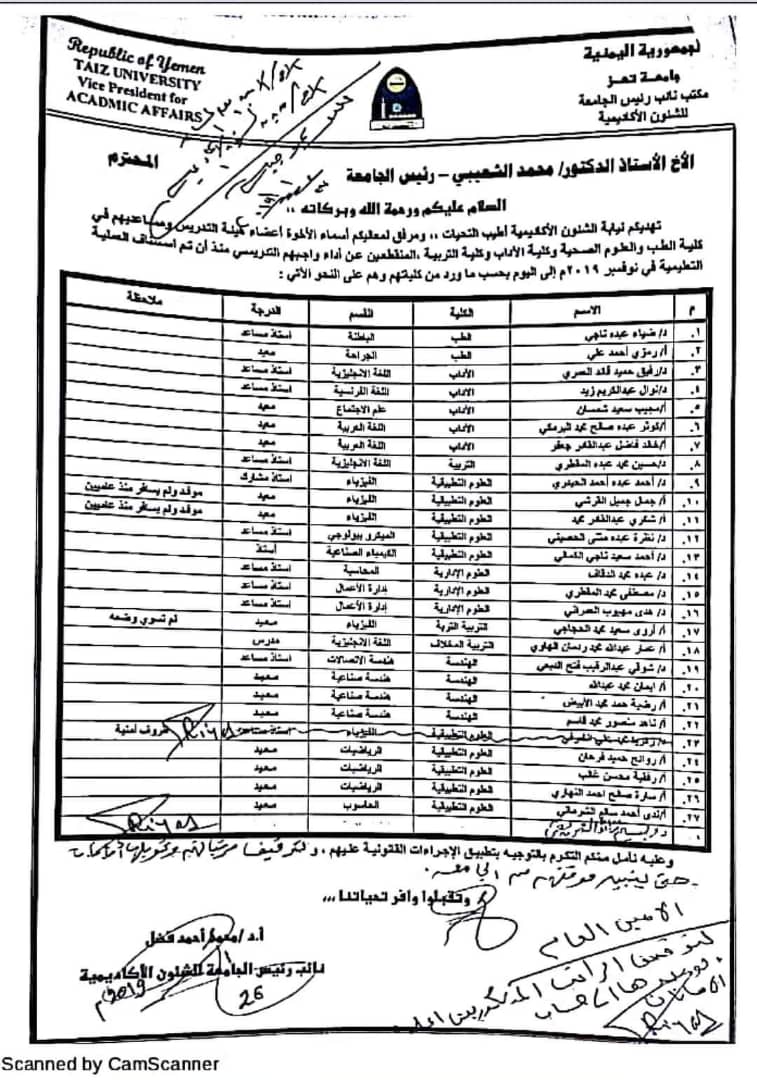 Republic of Yemen
TAIZ UNIVERSITY
Vice President for
ACADMIC AFFAIRS
الجمهورية اليمنية
جامعة تعز
مكتب نائب رئيس الجامعة
للشئون الأكاديمية
الأخ الأستاذ الدكتور/ محمد الشعيبي – رئيس الجامعة المحترم
السلام عليكم ورحمة الله وبركاته ،،
تهديكم نيابة الشئون الأكاديمية أطيب التحيات ،، ومرفق لمعاليكم أسماء الأخوة أعضاء هيئة التدريس ومساعديهم في
كلية الطب والعلوم الصحية وكلية الآداب وكلية التربية ،المنقطعين عن أداء واجبهم التدريسي منذ أن تم استئناف العملية
التعليمية في نوفمبر ٢٠١٩م إلى اليوم بحسب ما ورد من كلياتهم وهم على النحو الآتي :
م الاسم الكلية القسم الدرجة ملاحظة
١. د/ ضياء عبده ناجي الطب الباطنة أستاذ مساعد
٢. أ/ رمزي أحمد علي الطب الجراحة معيد
٣. د/ رفيق حميد قائد العمري الآداب اللغة الانجليزية أستاذ مساعد
٤. د/ نوال عبدالكريم زيد الآداب اللغة الفرنسية أستاذ مساعد
٥. أ/ مجيب سعيد شمسان الآداب علم الاجتماع معيد
٦. أ/ كوثر عبده صالح محمد البرمكي الآداب اللغة العربية معيد
٧. أ/ خالد فاضل عبدالقادر جعفر الآداب اللغة العربية معيد
٨. د/ حسين محمد عبده المقطري التربية اللغة الانجليزية أستاذ مساعد
٩. د/ أحمد عبده أحمد الحيدري العلوم التطبيقية الفيزياء أستاذ مشارك
١٠. أ/ جمال جميل القرشي العلوم التطبيقية الفيزياء معيد موفد ولم يسافر منذ عامين
١١. أ/ شكري عبدالقادر محمد العلوم التطبيقية الفيزياء معيد موفد ولم يسافر منذ عامين
١٢. د/ نظرة عبده مثنى الحصيني العلوم التطبيقية الميكروبيولوجي أستاذ مساعد
١٣. د/ أحمد سعيد ناجي الكمالي العلوم التطبيقية الكيمياء الصناعية أستاذ
١٤. د/ عبده محمد الدقاف العلوم الإدارية المحاسبة أستاذ مساعد
١٥. د/ مصطفى محمد المقطري العلوم الإدارية إدارة الأعمال أستاذ مساعد
١٦. د/ هدى مهيوب العمراني العلوم الإدارية إدارة الأعمال أستاذ مساعد
١٧. أ/ أروى سعيد محمد الحجاجي التربية التربة الفيزياء معيد لم تسوي وضعه
١٨. أ/ عمار عبدالله محمد ردمان الهاوي التربية المخلاف اللغة الانجليزية مدرس
١٩. د/ شوقي عبدالرقيب فتح الهندسة هندسة الاتصالات أستاذ مساعد
٢٠. أ/ ايمان محمد عبدالله الهندسة هندسة صناعية معيد
٢١. أ/ رضية حمد محمد الأبيض الهندسة هندسة صناعية معيد
٢٢. أ/ ناهد منصور محمد قاسم الهندسة هندسة صناعية معيد
٢٣. محمد علي العلوم التطبيقية الفيزياء أستاذ مساعد ظروف أمنية
٢٤. أ/ روائح حميد فرحان العلوم التطبيقية الرياضيات معيد
٢٥. أ/ رقية محسن غالب العلوم التطبيقية الرياضيات معيد
٢٦. أ/ سارة صالح احمد النهاري العلوم التطبيقية الرياضيات معيد
٢٧. أ/ندى أحمد سالم الشرماني العلوم التطبيقية الحاسوب معيد
وعليه نأمل منكم التكرم بالتوجيه بتطبيق الإجراءات القانونية عليهم ،
وتقبلوا وافر تحياتنا ،،،
الأمين العام
أ.د/ أحمد فضل
نائب رئيس الجامعة للشئون الأكاديمية
26
2019م
Scanned by CamScanner